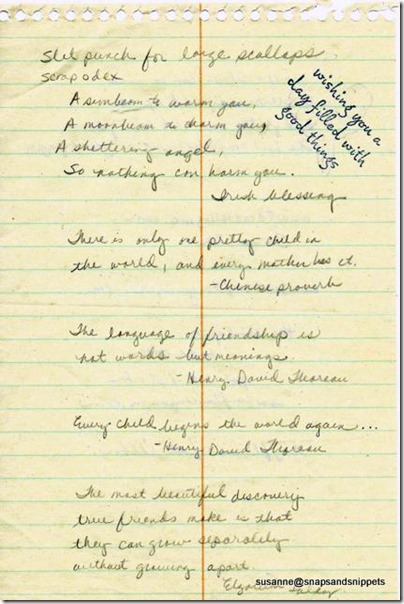 Slit punch for large scallops
Scrapodex
wishing you a
day filled with
good things
A sunbeam to warm you,
A moonbeam to charm you,
A sheltering angel,
So nothing can harm you.
Irish blessing
There is only one pretty child in
the world, and every mother has it.
-Chinese proverb
The language of friendship is
not words but meanings.
-Henry David Thoreau
Every child begins the world again...
-Henry David Thoreau
The most beautiful discovery
true friends make is that
they can grow separately
without growing apart.
susanne@snapsandsnippets